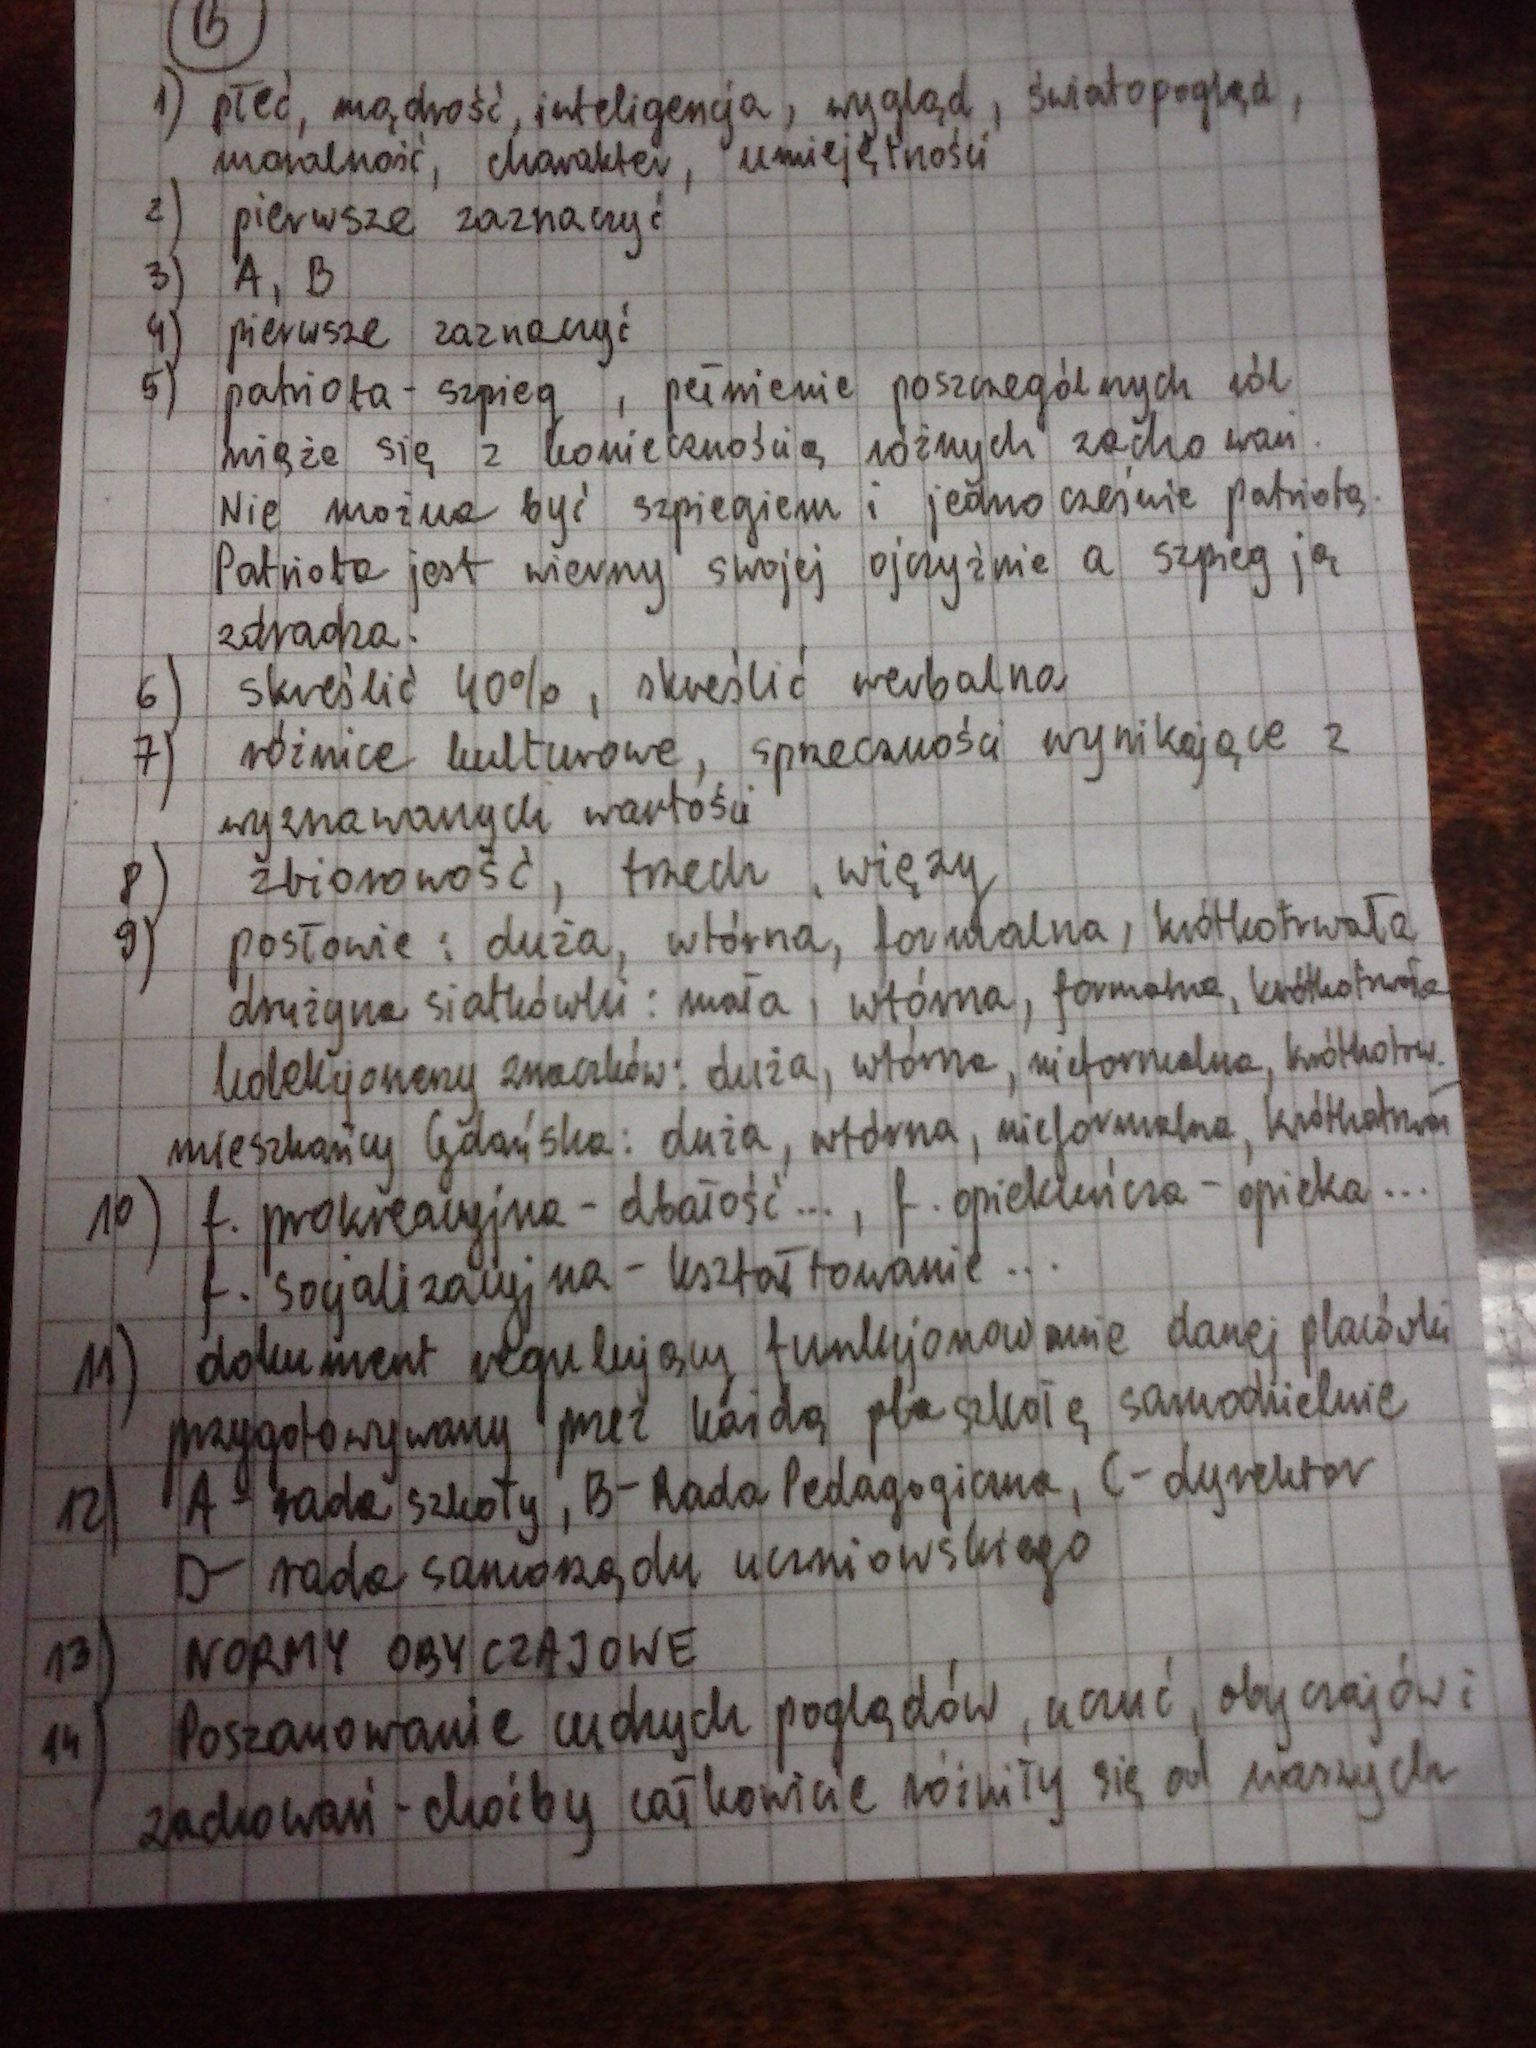 B
1) płeć, mądrość, inteligencja, wygląd, światopogląd,
moralność, charakter, umiejętności
2) pierwsze zaznaczyć
3) A, B
4) pierwsze zaznaczyć
5) patriota - szpieg, pełnienie poszczególnych ról
wiąże się z koniecznością różnych zachowań.
Nie można być szpiegiem i jednocześnie patriotą.
Patriota jest wierny swojej ojczyźnie a szpieg ją
zdradza.
6) skreślić 40%, skreślić werbalna
7) różnice kulturowe, sprzeczności wynikające z
wyznawanych wartości
8) zbiorowość, trzech, więzy
9) posłowie: duża, wtórna, formalna, krótkotrwała
drużyna siatkówki: mała, wtórna, formalna, krótkotrwała
kolekcjonerzy znaczków: duża, wtórna, nieformalna, krótkotrw.
mieszkańcy Gdańska: duża, wtórna, nieformalna,
10) f. prokreacyjna - dbałość..., f. opiekuńcza - opieka...
f. socjalizacyjna - kształtowanie...
11) dokument regulujący funkcjonowanie danej placówki
przygotowywany przez każdą szkołę samodzielnie
12) A - rada szkoły, B - Rada Pedagogiczna, C - dyrektor
D - rada samorządu uczniowskiego
13) NORMY OBYCZAJOWE
14) Poszanowanie cudzych poglądów, uczuć, obyczajów i
zachowań - choćby całkowicie różniły się od naszych